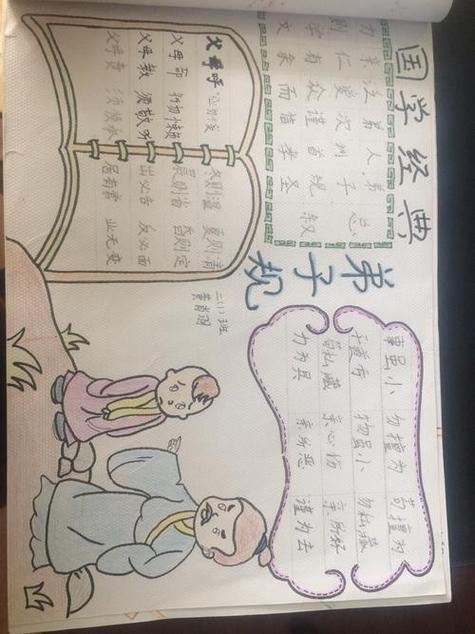 国学经典
总叙
弟子规圣
人训首孝
弟次谨信
泛爱众而
亲仁有余
力则学文
弟子规
父母呼 应勿缓
父母命 行勿懒
父母教 须敬听
父母责 须顺承
冬则温 夏则凊
晨则省 昏则定
出必告 反必面
居有常 业无变
二(1)班
事虽小 勿擅为 苟擅为
子道亏 物虽小 勿私藏
苟私藏 亲心伤 亲所好
力为具 亲所恶 谨为去